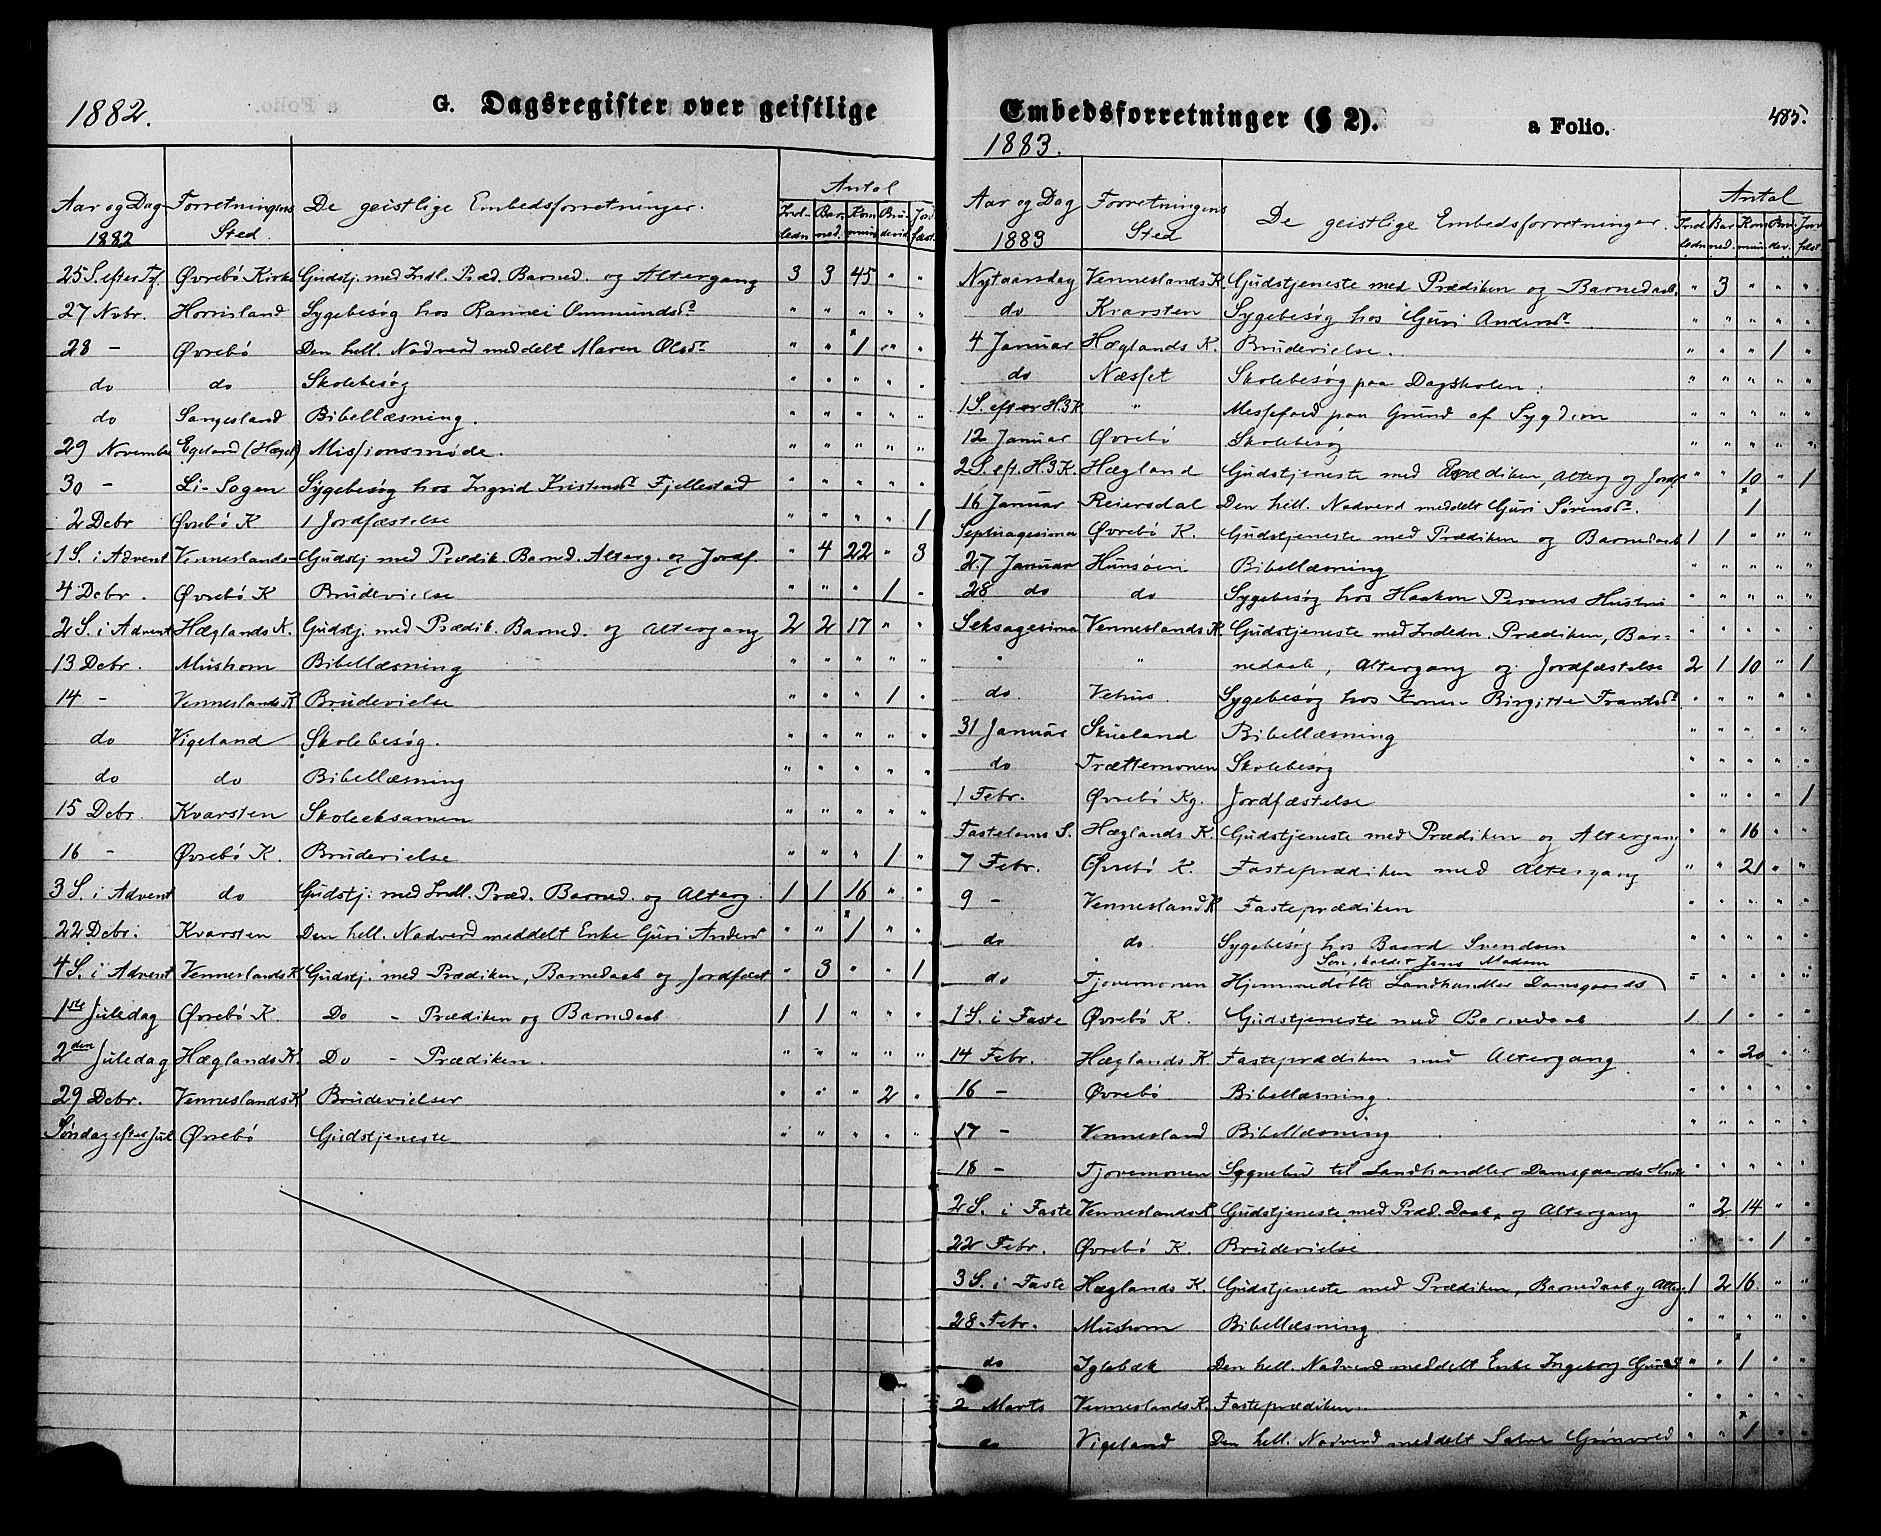 1882.
G. Dagsregister over geistlige
Antal
Aar og Dag Forretningens De geistlige Embedsforretninger. Ind- Bar- Kom Bru Jord
1882 Sted. ledn ned. muni devid fæst.
25 S. efter Tf. Øvrebö Kirke Gudstj. med Indl. Præd. Barned. og Altergang 3 3 45 " "
27 Nvbr. Horrisland Sygebesøg hos Rannei Ommundsd. " " " " "
28 - Øvrebö Den hell. Nadverd meddelt Maren Olsd. " " 1 " "
do do Skolebesøg " " " " "
do Sangesland Bibellæsning. " " " " "
29 November Egeland (Hægel) Missionsmøde. " " " " "
30 - Li-Sagen Sygebesøg hos Ingrid Kristensd. Fjellestad " " " " "
2 Debr Øvrebö K 1 Jordfæstelse " " " " 1
1 S. i Advent Venneslands- Gudstj med Prædik. Barned. Alterg. og Jordf. " 4 22 " 3
4 Debr. Øvrebö K Brudevielse " " " 1 "
2 S. i Advent Hæglands K. Gudstj. med Prædik. Barned. og Altergang 2 2 17 " "
13 Debr. Mushom Bibellæsning " " " " "
14 - Venneslands K Brudevielse " " " 1 "
do Vigeland Skolebesøg. " " " " "
do do Bibellæsning " " " " "
15 Debr. Kvarsten Skoleeksamen " " " " "
16 - Øvrebö K. Brudevielse " " " 1 "
3 S. i Advent do Gudstj. med Indl. Præd. Barned. og Alterg. 1 1 16 " "
22 Debr. Kvarsten Den hell. Nadverd meddelt Enke Guri Andersd " " 1 " "
4 S. i Advent Venneslands K Gudstj. med Prædiken, Barnedaab og Jordfæst " 3 " " 1
1ste Juledag Øvrebö K. Do - Prædiken og Barnedaab 1 1 " " "
2den Juledag Hæglands K. Do - Prædiken. " " " " "
29 Debr. Venneslands K Brudevielser " " " 2 "
Søndag efter Jul Øvrebö Gudstjeneste " " " " "
Embedsforretninger (§ 2).
a Folio.
485.
1883.
Antal
Aar og Dag Forretningens De geistlige Embedsforretninger. Ind Bar Kom Bru Jord
1883 Sted ledn ned. muni dev. fæst.
Nytaarsdag Venneslands K Gudstjeneste med Prædiken og Barnedaab. " 3 " " "
do Kvarsten Sygebesøg hos Guri Andersd. " " " " "
4 Januar Hæglands K. Brudevielse. " " " 1 "
do Næsset Skolebesøg paa Dagskolen. " " " " "
1 S. efter H.3K " Messefald paa Grund af Sygdom " " " " "
12 Januar Øvrebö Skolebesøg " " " " "
2 S. eft. H.3K. Hægland Gudstjeneste med Prædiken, Alterg og Jordf. " " 10 " 1
16 Januar Reiersdal Den hell. Nadverd meddelt Guri Sørensd. " " 1 " "
Septuagesima Øvrebö K. Gudstjeneste med Prædiken og Barnedaab 1 1 " " "
27 Januar Hunsøen Bibellæsning " " " " "
28 do do Sygebesøg hos Haakon Persens Hustru " " " " "
Seksagesima Venneslands K. Gudstjeneste med Indledn. Prædiken, Bar- " " " " "
" " nedaab, Altergang og Jordfæstelse 2 1 10 " 1
do Vehus. Sygebesøg hos Birgitte Frantsd. " " " " "
31 Januar Skueland Bibellæsning " " " " "
do Trættemonen Skolebesøg " " " " "
1 Febr. Øvrebö Kg. Jordfæstelse " " " " 1
Fastelavns S. Hæglands K. Gudstjeneste med Prædiken og Altergang " " 16 " "
7 Febr. Øvrebö K. Fasteprædiken med Altergang " " 21 " "
9 - Vennesland K Fasteprædiken " " " " "
do do Sygebesøg hos Baard Svendsen " " " " "
Søn, kaldet Jens Madsen
do Tjovemonen Hjemmedøbte Landhandler Damsgaards " " " " "
1 S. i Faste Øvrebö K. Gudstjeneste med Barnedaab 1 1 " " "
14 Febr. Hæglands K Fasteprædiken med Altergang " " 20 " "
16 - Øvrebö Bibellæsning. " " " " "
17 - Vennesland Bibellæsning " " " " "
18 - Tjovemonen Sognebud til Landhandler Damsgaards Hust " " " " "
2 S. i Faste Venneslands K Gudstjeneste med Præd. Daab, og Altergang " 2 14 " "
22 Febr. Øvrebö K. Brudevielse " " " 1 "
3 S. i Faste Hæglands K. Gudstjeneste med Prædiken, Barnedaab og Alterg. 1 2 16 " "
28 Febr. Mushom Bibellæsning " " " " "
do Iglebæk Den hell. Nadverd meddelt Enke Ingeborg " " 1 " "
2 Marts Venneslands K. Fasteprædiken. " " " " "
do Vigeland Den hell. Nadverd meddelt " " 1 " "